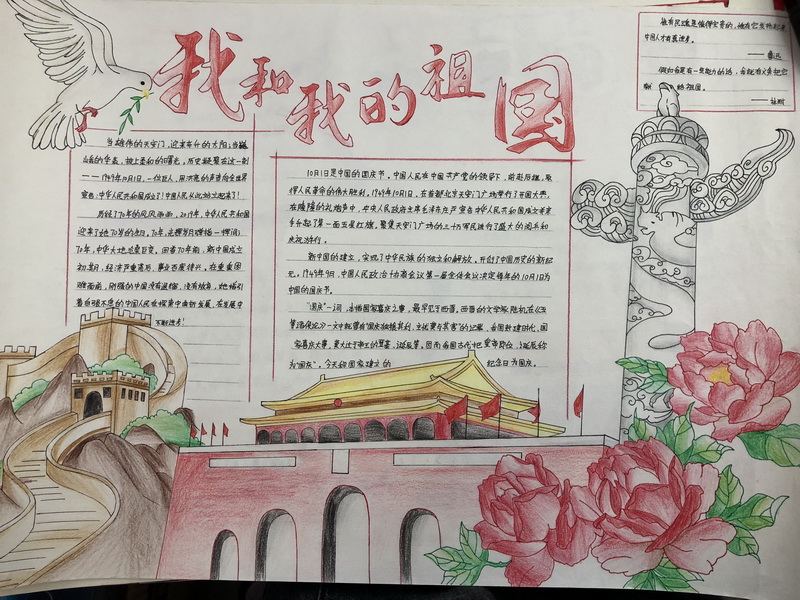 我和我的祖国
惟有民魂是值得宝贵的，惟有它发扬起来，
中国人才有真进步。
——鲁迅
假如我是有一些能力的话，我就有义务把它
献给祖国。
——林耐
当雄伟的天安门，迎来东升的太阳；当巍
的华表，披上喜和的曙光。历史凝聚在这一刻
——1949年10月1日，一位巨人，用洪亮的声音向全世界
宣告：中华人民共和国成立了！中国人从此站立起来了！
历经了70年的风风雨雨，2019年，中华人民共和国
迎来了她70岁的生日。70年，
70年，中华大地沧桑百变。回首70年前，新中国成立
初期，经济严重落后，事业百废待兴。在重重困
难面前，刚强的中国没有退缩，没有放弃，她指引
着自强不息的中国人民在探索中曲折发展，在发展中
不断进步！
10月1日是中国的国庆节。中国人民在中国共产党的领导下，前赴后继，取
得人民革命的伟大胜利。1949年10月1日，在首都北京天安门广场举行了开国大典，
在隆隆的礼炮声中，中央人民政府主席毛泽东庄严宣告中华人民共和国成立并亲
手升起了第一面五星红旗。聚集天安门广场的三十万军民进行了盛大的阅兵和
庆祝游行。
新中国的建立，实现了中华民族的独立和解放，开创了中国历史的新纪
元。1949年9日，中国人民政治协商会议第一届全体会议决定每年的10月1日为
中国的国庆日。
“国庆”一词，本指国家喜庆之事，最早见于西晋。西晋的文学家陆机在《五
等诸侯论》一文中就曾有“国庆独飨其利，主忧莫与其害”的记载，我国封建时代，国
家喜庆大事，莫大过于帝王的登基、诞辰等。因而我国古代把皇帝即位、诞辰称
为“国庆”。今天称国家建立的纪念日为国庆。